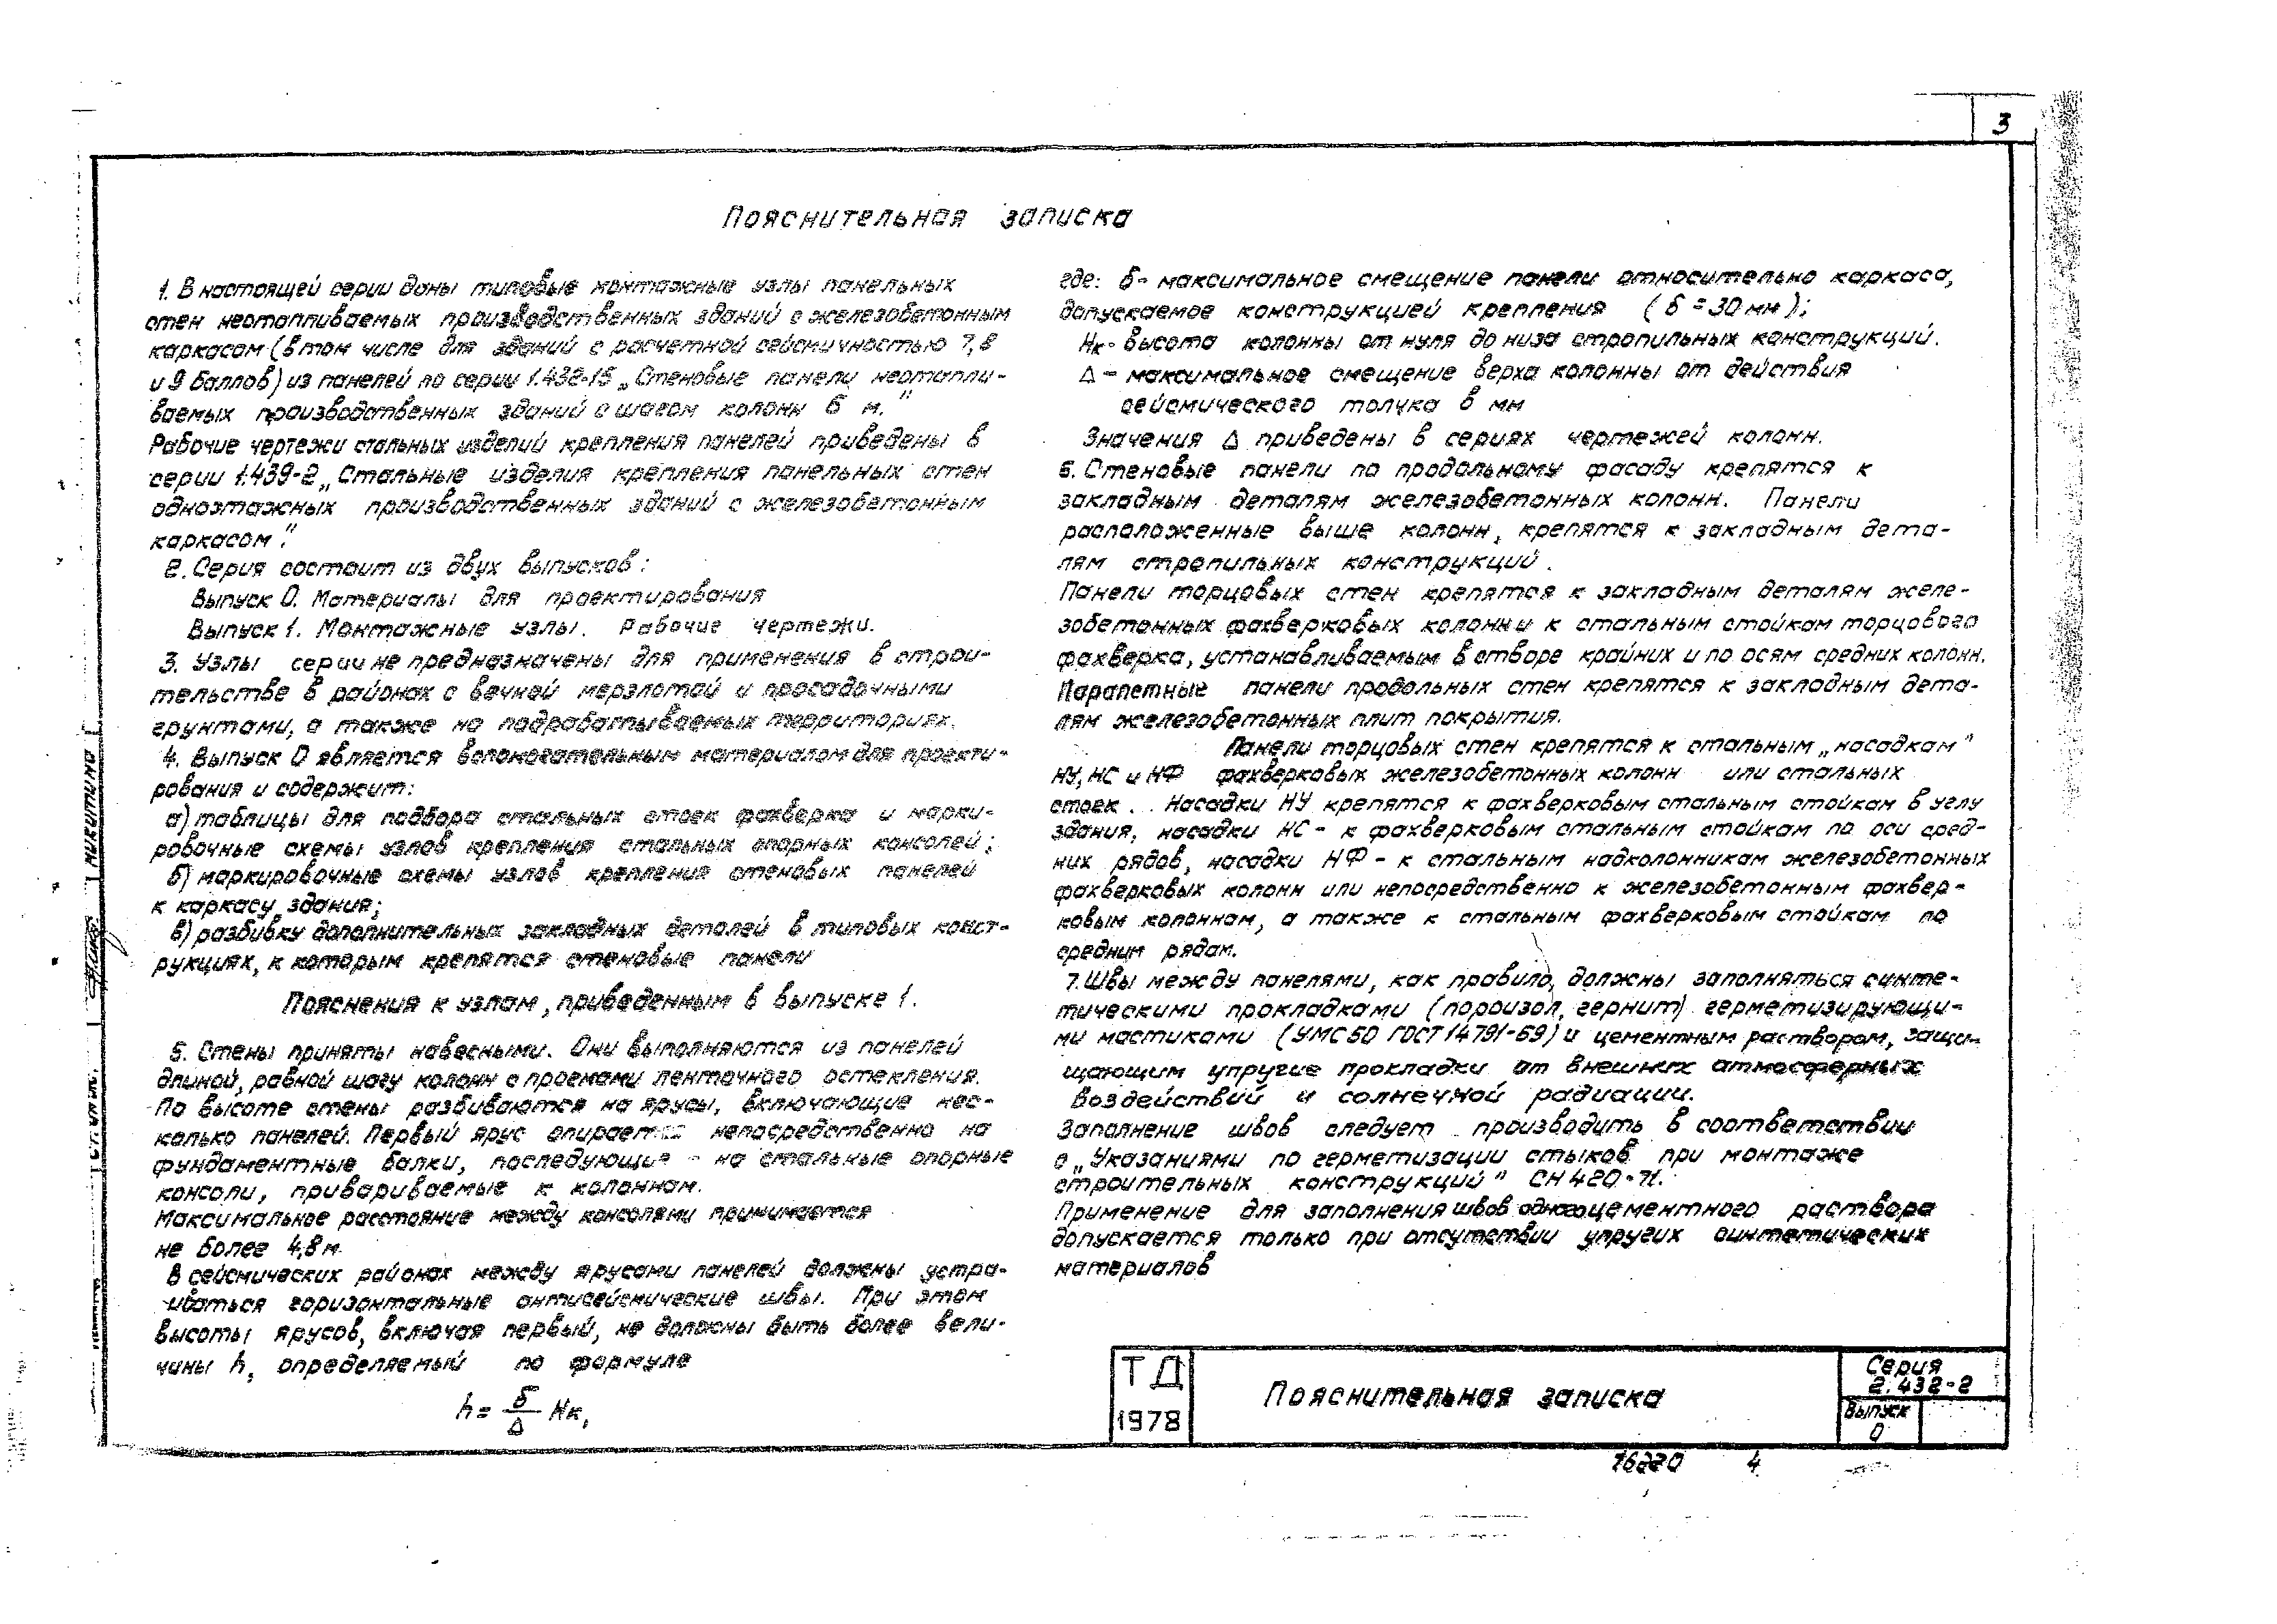 3
Пояснительная записка
1. В настоящей серии даны типовые монтажные узлы панельных
стен неотапливаемых производственных зданий с железобетонным
каркасом (в том числе для зданий с расчетной сейсмичностью 7, 8
и 9 баллов) из панелей по серии 1.432-15 „Стеновые панели неотапли-
ваемых производственных зданий с шагом колонн 6 м."
Рабочие чертежи стальных изделий крепления панелей приведены в
серии 1.439-2 „Стальные изделия крепления панельных стен
одноэтажных производственных зданий с железобетонным
каркасом".
2. Серия состоит из двух выпусков:
Выпуск 0. Материалы для проектирования
Выпуск 1. Монтажные узлы. Рабочие чертежи.
3. Узлы серии не предназначены для применения в строи-
тельстве в районах с вечной мерзлотой и просадочными
грунтами, а также на подрабатываемых территориях.
4. Выпуск 0 является вспомогательным материалом для проекти-
рования и содержит:
а) таблицы для подбора стальных стоек фахверка и марки-
ровочные схемы узлов крепления стальных опорных консолей;
б) маркировочные схемы узлов крепления стеновых панелей
к каркасу здания;
в) разбивку дополнительных закладных деталей в типовых конст-
рукциях, к которым крепятся стеновые панели
Пояснения к узлам, приведенным в выпуске 1.
5. Стены приняты навесными. Они выполняются из панелей
длиной, равной шагу колонн с проемами ленточного остекления.
По высоте стены разбиваются на ярусы, включающие нес-
колько панелей. Первый ярус опирается непосредственно на
фундаментные балки, последующие - на стальные опорные
консоли, привариваемые к колоннам.
Максимальное расстояние между консолями принимается
не более 4,8 м.
В сейсмических районах между ярусами панелей должны устра-
иваться горизонтальные антисейсмические швы. При этом
высоты ярусов, включая первый, не должны быть более вели-
чины h, определяемый по формуле
h = δ/Δ Hк,
где: δ - максимальное смещение панели относительно каркаса,
допускаемое конструкцией крепления (δ = 30 мм);
Hк - высота колонны от нуля до низа стропильных конструкций.
Δ - максимальное смещение верха колонны от действия
сейсмического толчка в мм
Значения Δ приведены в сериях чертежей колонн.
6. Стеновые панели по продольному фасаду крепятся к
закладным деталям железобетонных колонн. Панели
расположенные выше колонн, крепятся к закладным дета-
лям стропильных конструкций.
Панели торцовых стен крепятся к закладным деталям желе-
зобетонных фахверковых колонн и к стальным стойкам торцового
фахверка, устанавливаемым в створе крайних и по осям средних колонн.
Парапетные панели продольных стен крепятся к закладным дета-
лям железобетонных плит покрытия.
Панели торцовых стен крепятся к стальным „насадкам"
НУ, НС и НФ фахверковых железобетонных колонн или стальных
стоек. Насадки НУ крепятся к фахверковым стальным стойкам в углу
здания, насадки НС - к фахверковым стальным стойкам по оси сред-
них рядов, насадки НФ - к стальным надколонникам железобетонных
фахверковых колонн или непосредственно к железобетонным фахвер-
ковым колоннам, а также к стальным фахверковым стойкам по
средним рядам.
7. Швы между панелями, как правило, должны заполняться синте-
тическими прокладками (пороизол, гернит) герметизирующи-
ми мастиками (УМС 50 ГОСТ 14791-69) и цементным раствором, защи-
щающим упругие прокладки от внешних атмосферных
воздействий и солнечной радиации.
Заполнение швов следует производить в соответствии
с „Указаниями по герметизации стыков при монтаже
строительных конструкций" СН 420-71.
Применение для заполнения швов одного цементного раствора
допускается только при отсутствии упругих синтетических
материалов
ТД
1978
Пояснительная записка
Серия
2.432-2
Выпуск
0
16220 4
Никитина